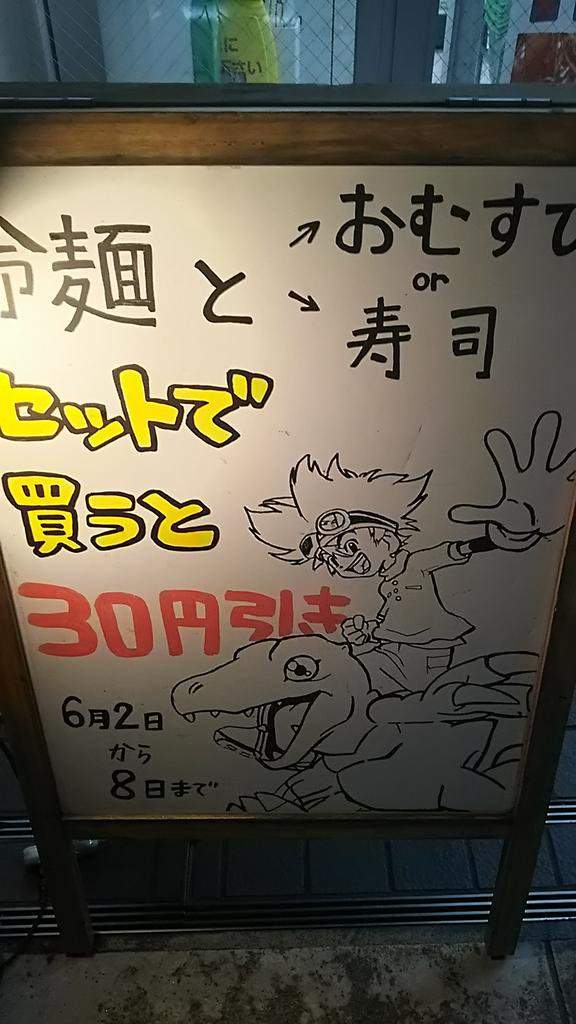 に
下さい
冷麺と
↗おむすび
or
↘寿司
セットで
買うと
30円引き
6月2日
から
8日まで